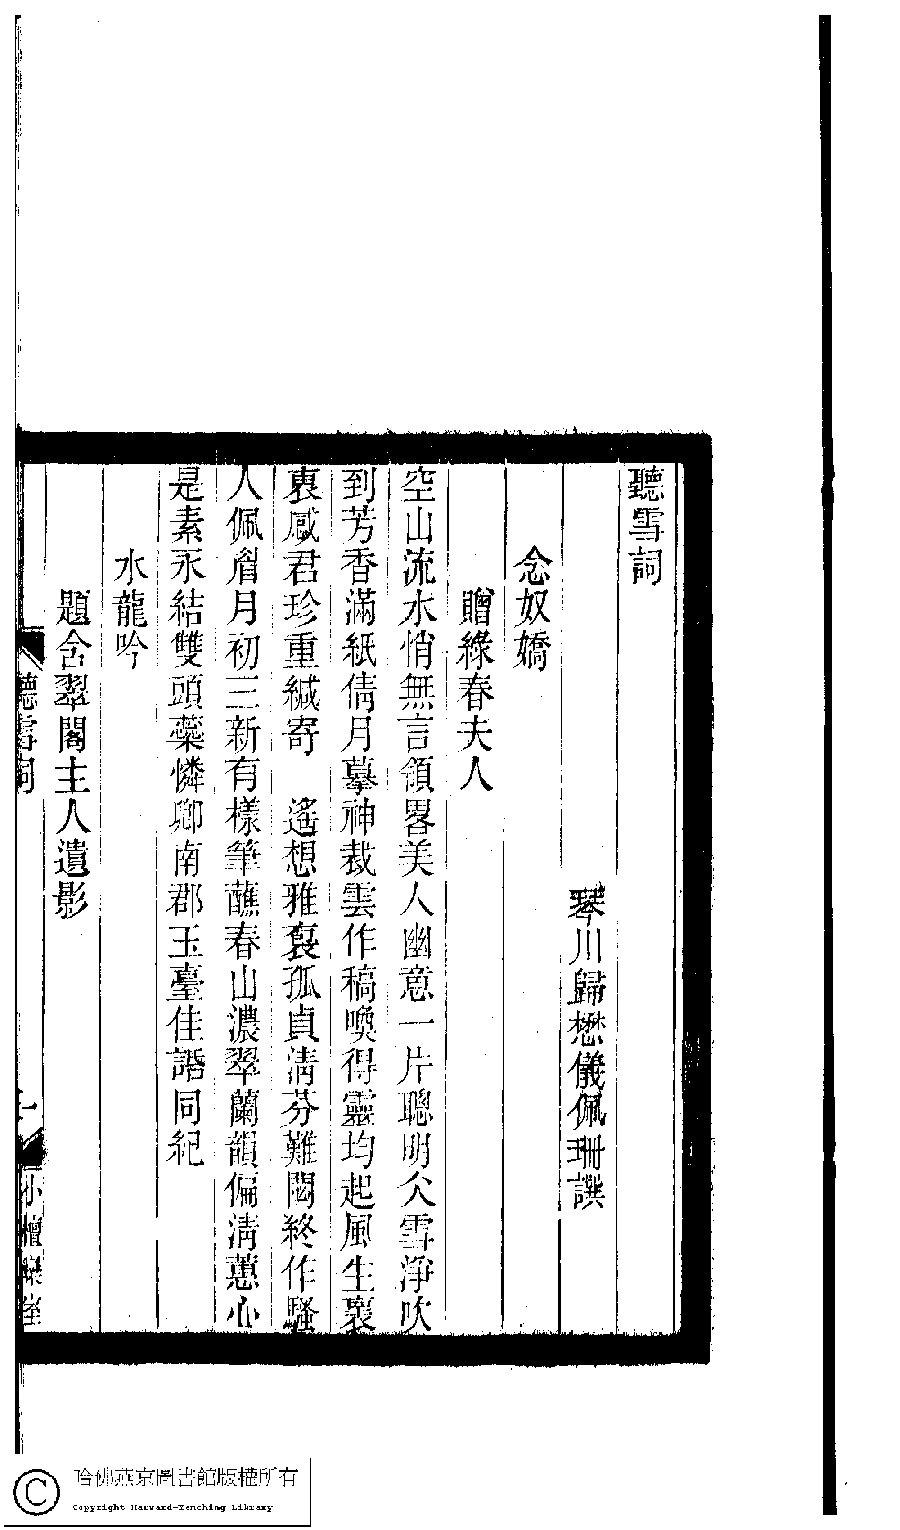 聽雪詞
琴川歸懋儀佩珊譔
念奴嬌
贈綠春夫人
空山流水悄無言領畧美人幽意一片聰明仌雪淨吹
到芳香滿紙倩月摹神裁雲作稿喚得靈均起風生裏
裏感君珍重緘寄　遙想雅裒孤貞淸芬難閟終作騷
人佩眉月初三新有樣筆蘸春山濃翠蘭韻偏淸蕙心
是素永結雙頭蘂憐卿南郡玉臺佳話同紀
水龍吟
題含翠閣主人遺影
聽雪詞
一
小檀欒室
哈佛燕京圖書館版權所有
Copyright Harvard-Yenching Library